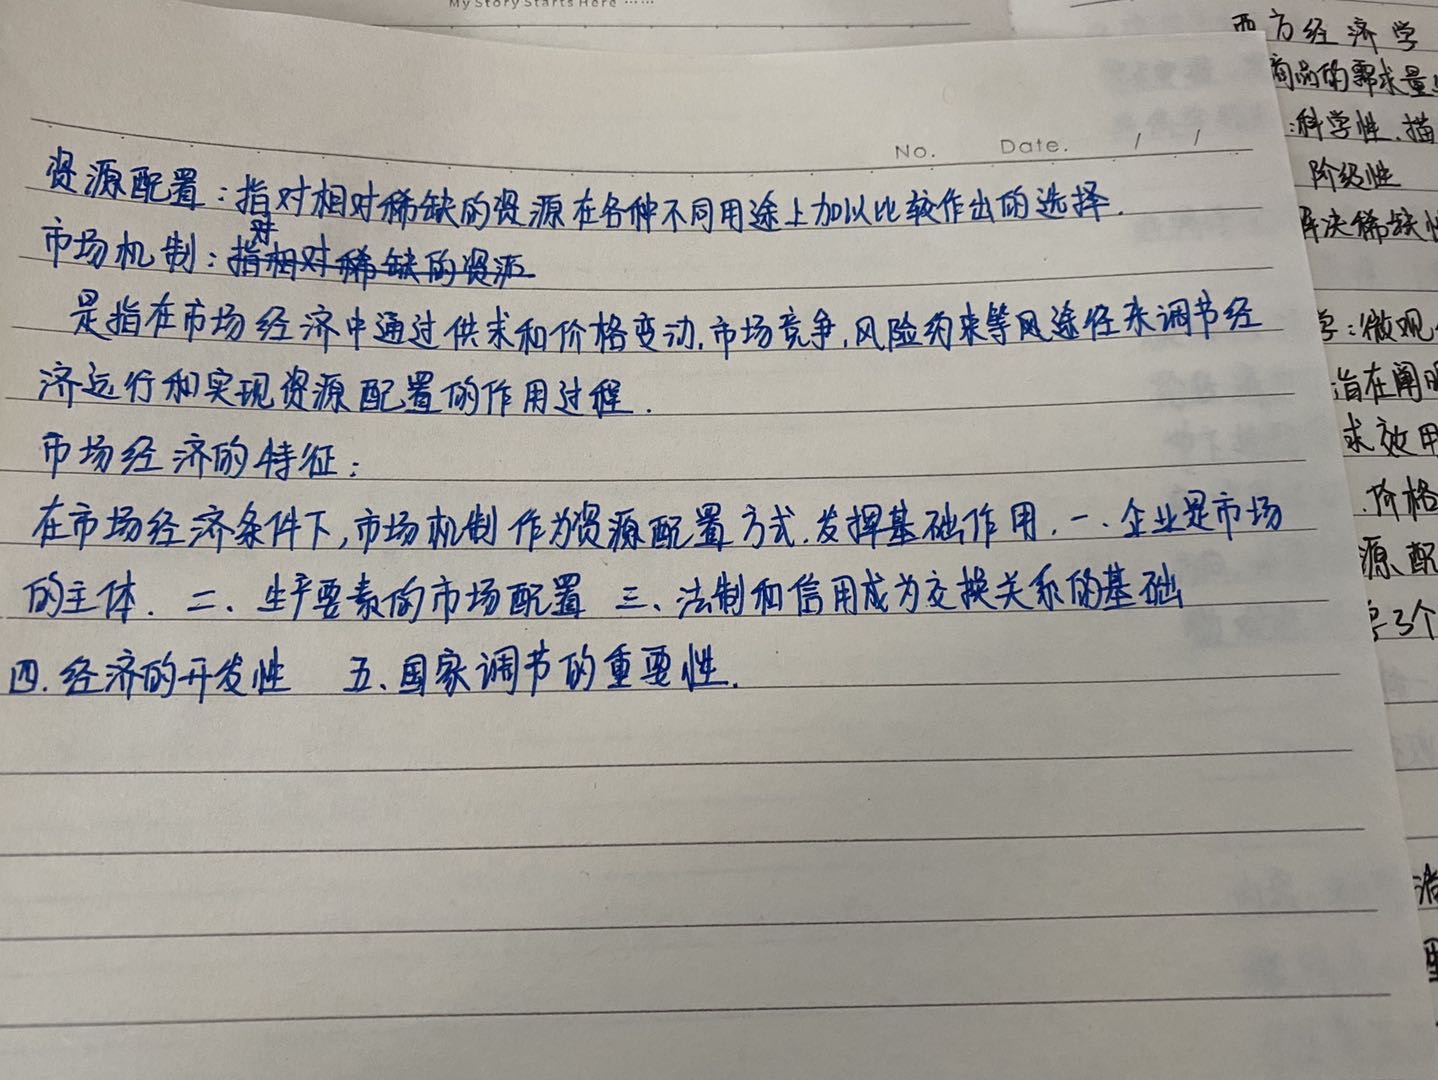 My Story Starts Here ……
No. Date. / /
资源配置：指对相对稀缺的资源在各种不同用途上加以比较作出的选择.
对
市场机制：指相对稀缺的资源
是指在市场经济中通过供求和价格变动,市场竞争,风险约束等风途径来调节经
济运行和实现资源配置的作用过程.
市场经济的特征：
在市场经济条件下,市场机制作为资源配置方式.发挥基础作用.一、企业是市场
的主体. 二、生产要素的市场配置 三、法制和信用成为交换关系的基础
四.经济的开发性 五、国家调节的重要性.
西方经济学
商品的需求量
:科学性.描
阶级性
解决稀缺性
学：微观
旨在阐明
求效用
.价格
源配
学3个